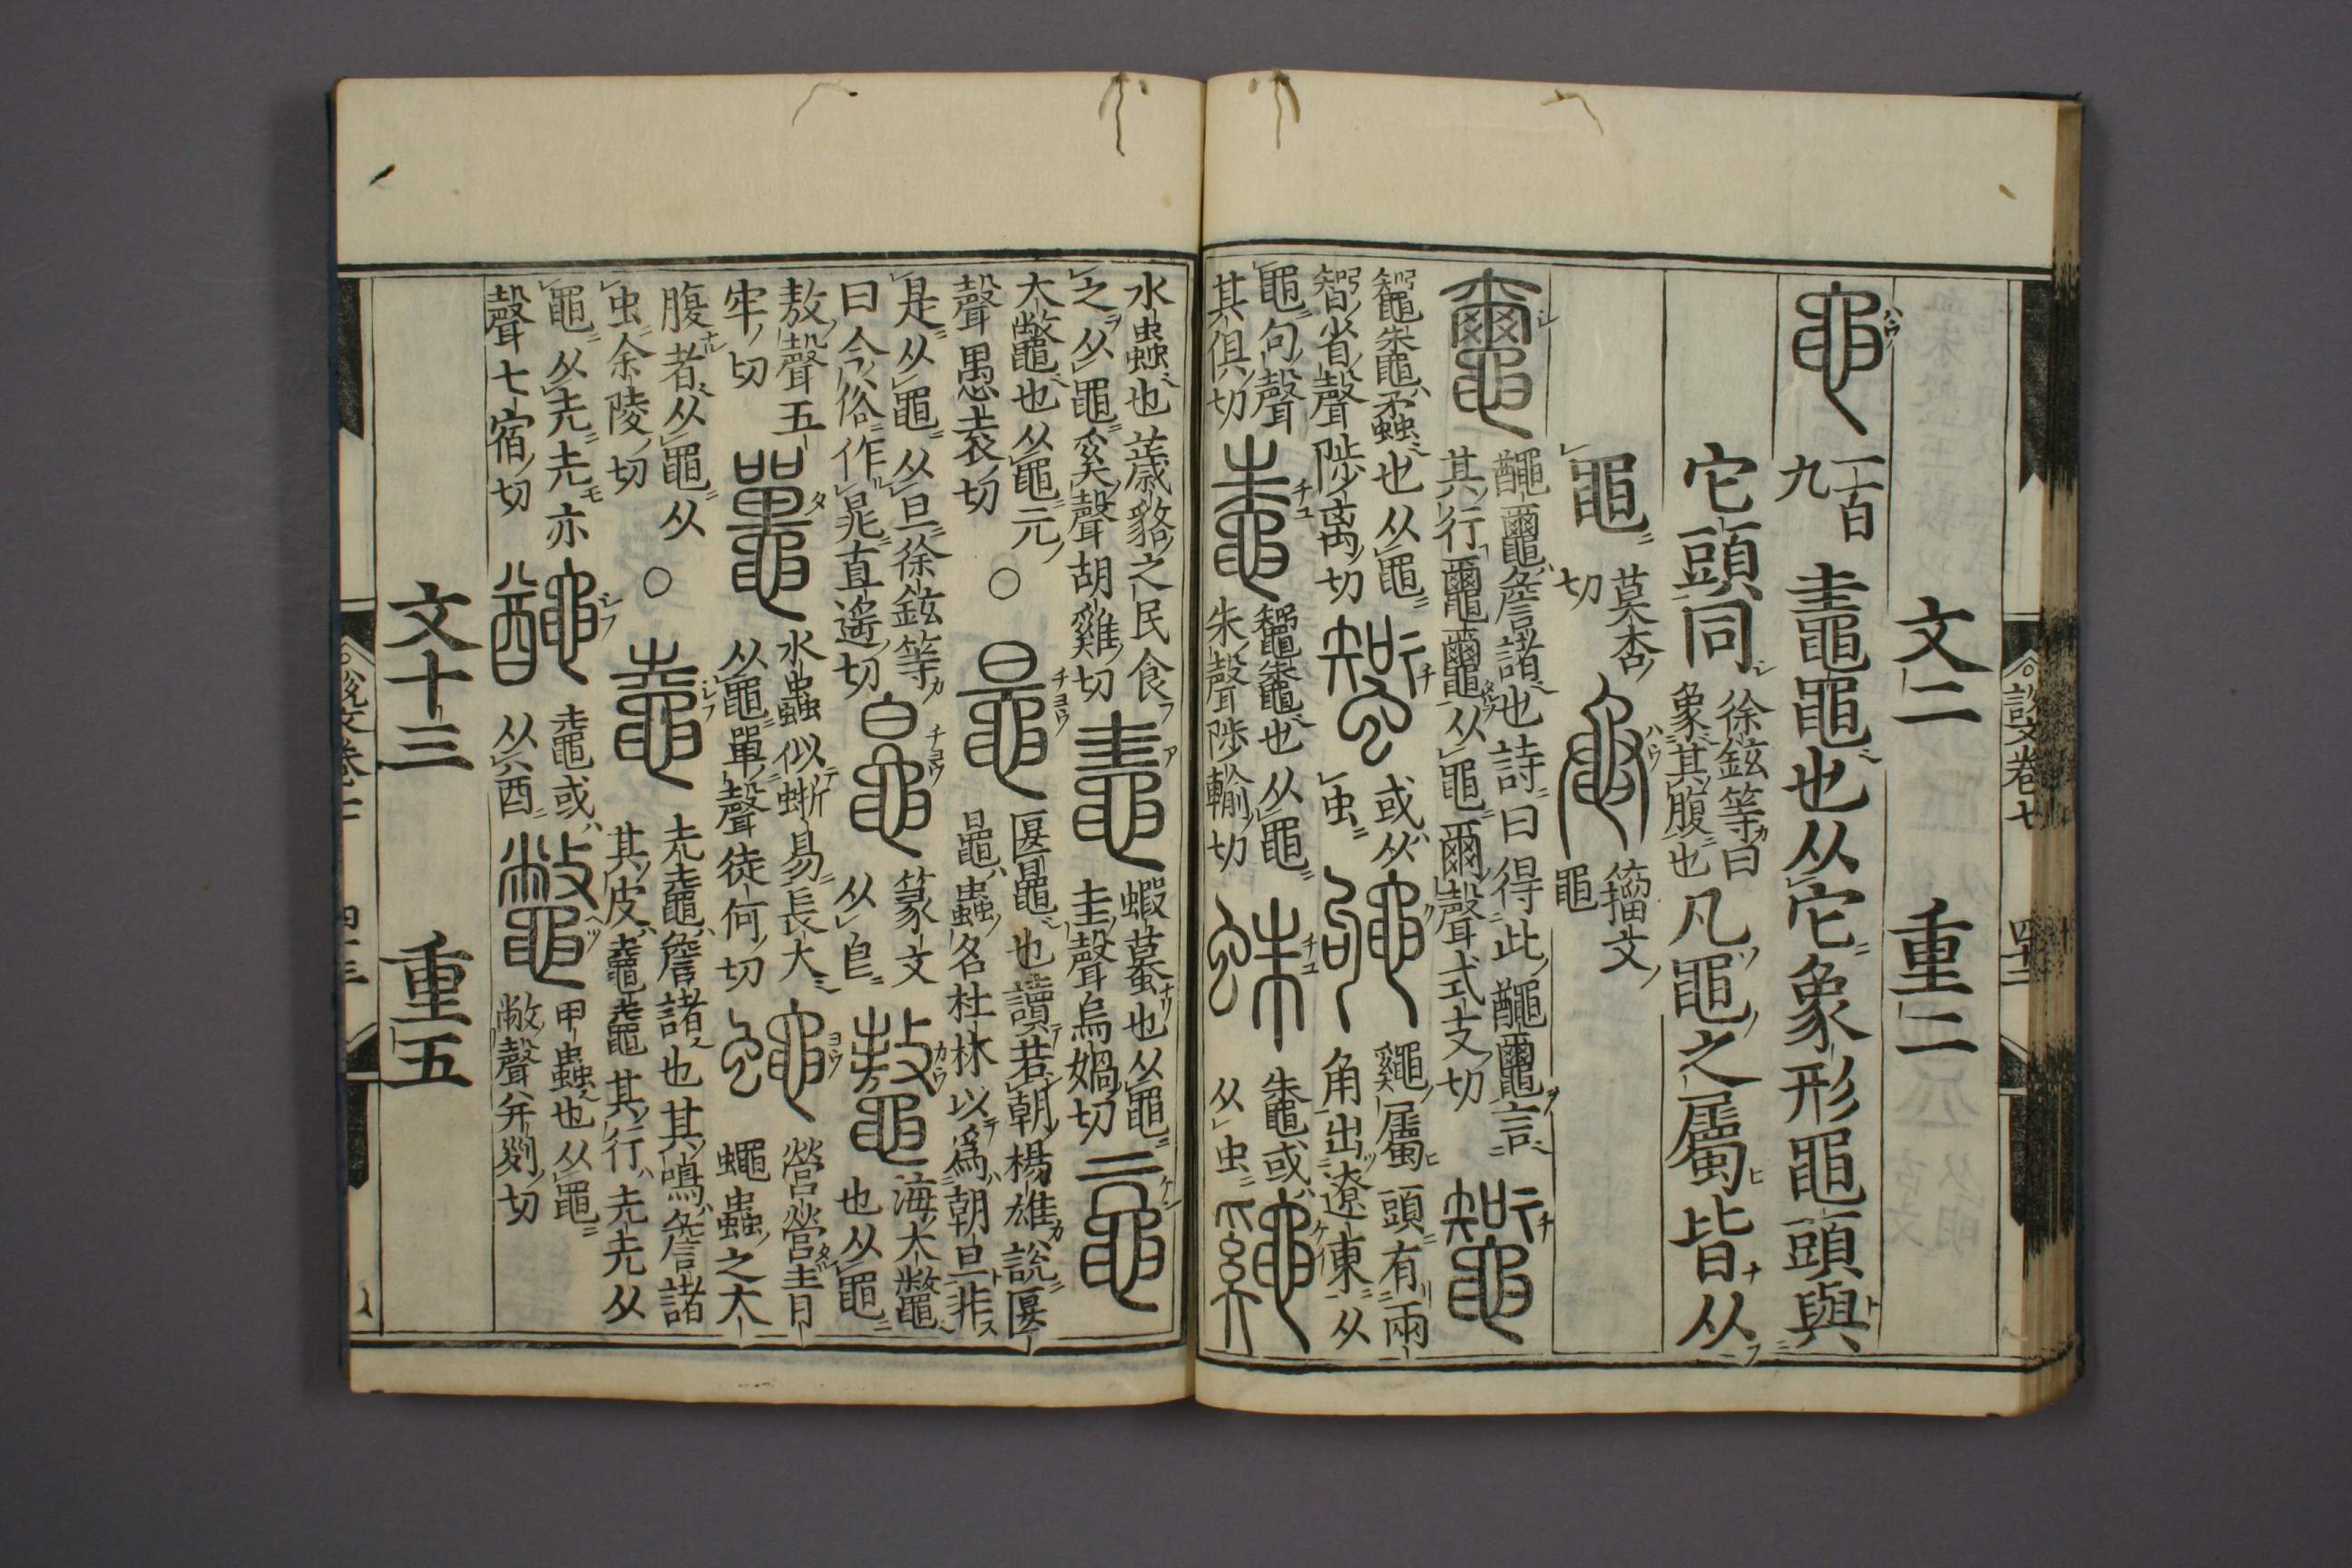 說文卷七 四十二
文二 重二
黽 一百九
鼃黽也从它象形黽頭與
它頭同 徐鉉等曰
象其腹也
凡黽之屬皆从
黽 莫杏
切
籀文
黽
詹諸也詩曰得此
言
其行
从黽爾聲式支切
鼅鼄蟊也从黽
𥏼省聲陟离切
或从
虫
屬頭有兩
角出遼東从
黽句聲
其俱切
鼄
鼅鼄也从黽
朱聲陟輸切
蛛
鼄或
从虫
水蟲也薉貉之民食
之从黽奚聲胡雞切
鼃
蝦蟇也从黽
圭聲烏媧切
黿
大鼈也从黽元
聲愚袁切
○
鼂
匽鼂也讀若朝楊雄說匽
鼂蟲名杜林以爲朝旦非
是从黽从旦徐鉉等
曰今俗作晁直遙切
篆文
从皀
鼇
海大鼈
也从黽
敖聲五
牢切
鼉
水蟲似蜥易長大
从黽單聲徒何切
蠅
營營青
蠅蟲之大
腹者从黽从
虫余陵切
○
鼀
圥鼀詹諸也其鳴詹諸
其皮鼀鼀其行圥圥从
黽从圥圥亦
聲七宿切
鼀或
从酋
鼈
甲蟲也从黽
敝聲并列切
文十三 重五